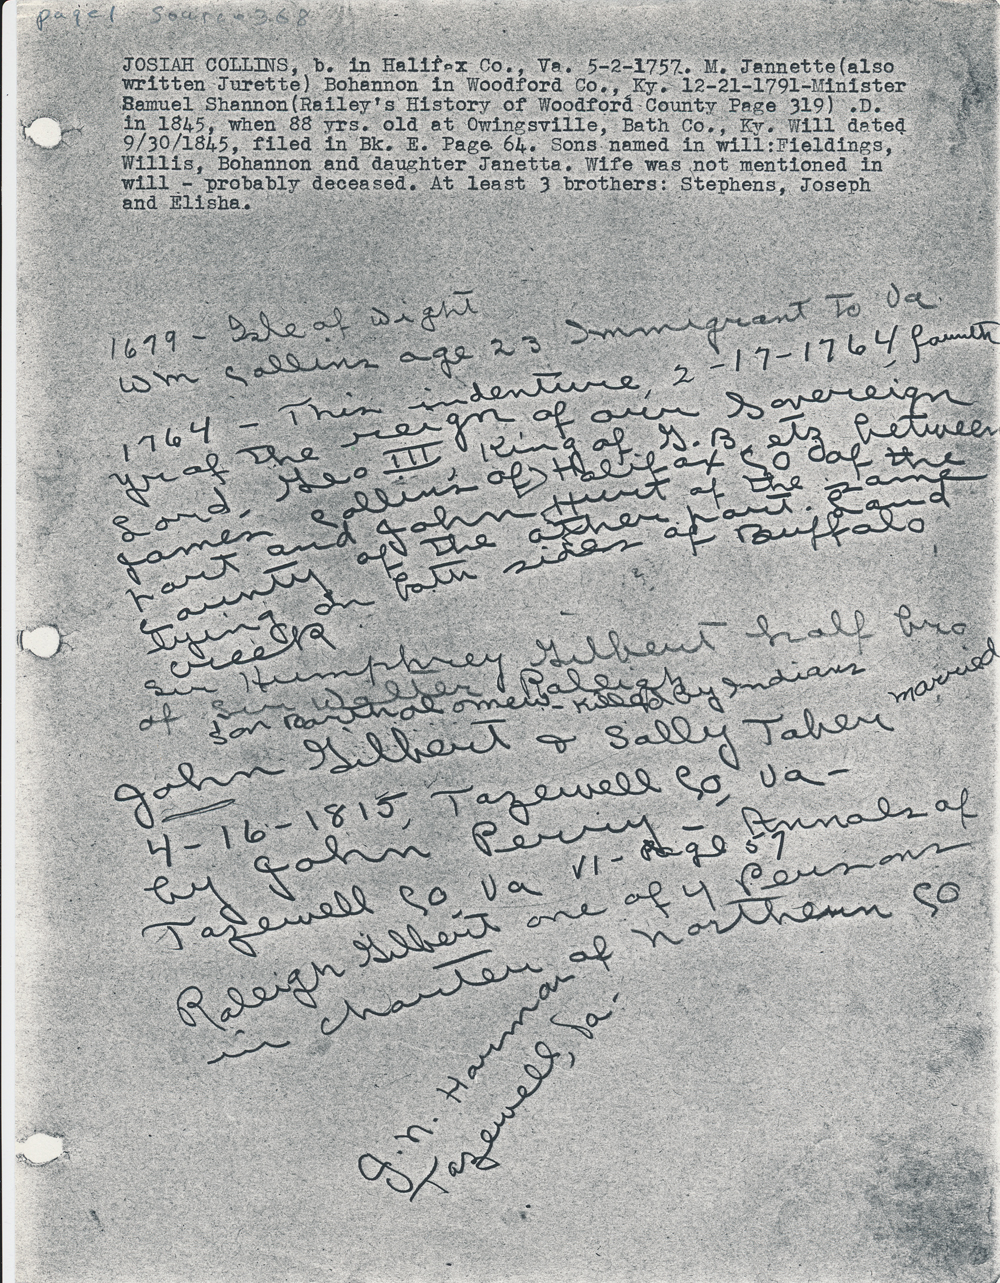 page 1 Source 368
JOSIAH COLLINS, b. in Halifax Co., Va. 5-2-1757. M. Jannette(also
written Jurette) Bohannon in Woodford Co., Ky. 12-21-1791-Minister
Ramuel Shannon(Railey's History of Woodford County Page 319) .D.
in 1845, when 88 yrs. old at Owingsville, Bath Co., Ky. Will dated
9/30/1845, filed in Bk. E. Page 64. Sons named in will:Fieldings,
Willis, Bohannon and daughter Janetta. Wife was not mentioned in
will - probably deceased. At least 3 brothers: Stephens, Joseph
and Elisha.
1679 - Isle of Wight
Wm Collins age 23 Immigrant to Va.
1764 - This indenture, 2-17-1764, fourth
yr of the reign of our Sovereign
Lord, Geo III, King of G.B. etc between
James Collins of Halifax Co of the
part and John Hunt of the same
County of the other part. Land
lying on both sides of Buffalo
creek
Sir Humphrey Gilbert half bro
of Sir Walter Raleigh
son Bartholomew - killed by Indians
John Gilbert & Sally Taber married
4-16-1815, Tazewell Co, Va -
by John Perry - Annals of
Tazewell Co, Va V1 - Page 57
Raleigh Gilbert one of 4 Persons
in charter of Northern Co
J. N. Harman
Tazewell, Va.